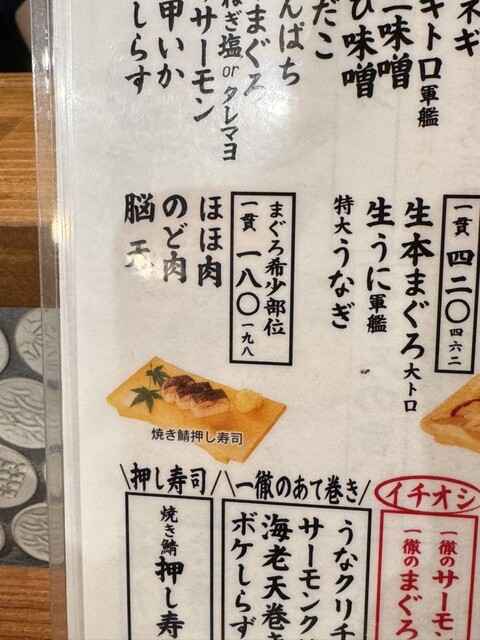 ネギ
キトロ軍艦
味噌
味噌
だこ
んぱち
まぐろ
ねぎ塩orタレマヨ
サーモン
甲いか
しらす
一貫 四二〇 四六二
生本まぐろ大トロ
生うに軍艦
特大うなぎ
まぐろ希少部位
一貫 一八〇 一九八
ほほ肉
のど肉
脳天
焼き鯖押し寿司
イチオシ
一徹のサーモン
一徹のまぐろ
一徹のあて巻き
うなクリチ
サーモンク
海老天巻き
ボケしらず
押し寿司
焼き鯖押し寿